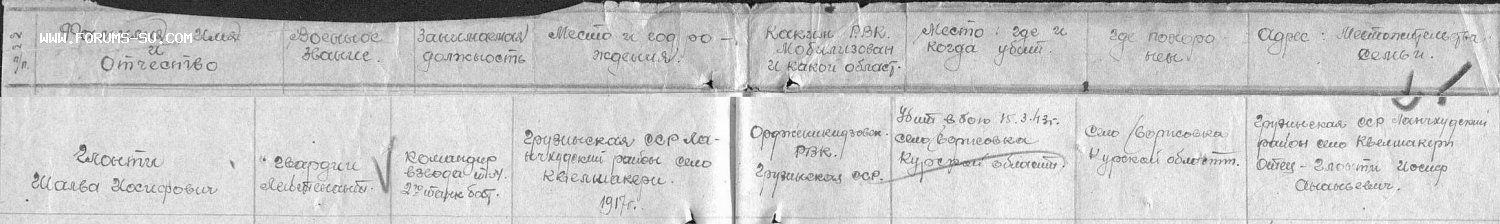 №№ п/п.
WWW.FORUMS-SU.COM
Имя
и
Отчество
Военное
звание.
Занимаемая
должность
Место и год ро-
ждения.
Каким РВК.
Мобилизован
и какой област.
Место: где и
когда убит.
Где похоро-
нен
Адрес: Местожительства
семьи.
Глонти
Шалва Иосифович
Гвардии
Лейтенант.
Командир
взвода
2го танк. бат.
Грузинская ССР Ла-
нчхудский район село
Квелшакери.
1917г.
Орджоникидзовск.
РВК.
Грузинская ССР.
Убит в бою 15.3.43г.
село Борисовка
Курской области.
Село Борисовка
Курской области.
Грузинская ССР Ланчхудский
район село Квелшакери
Отец - Глонти Иосиф